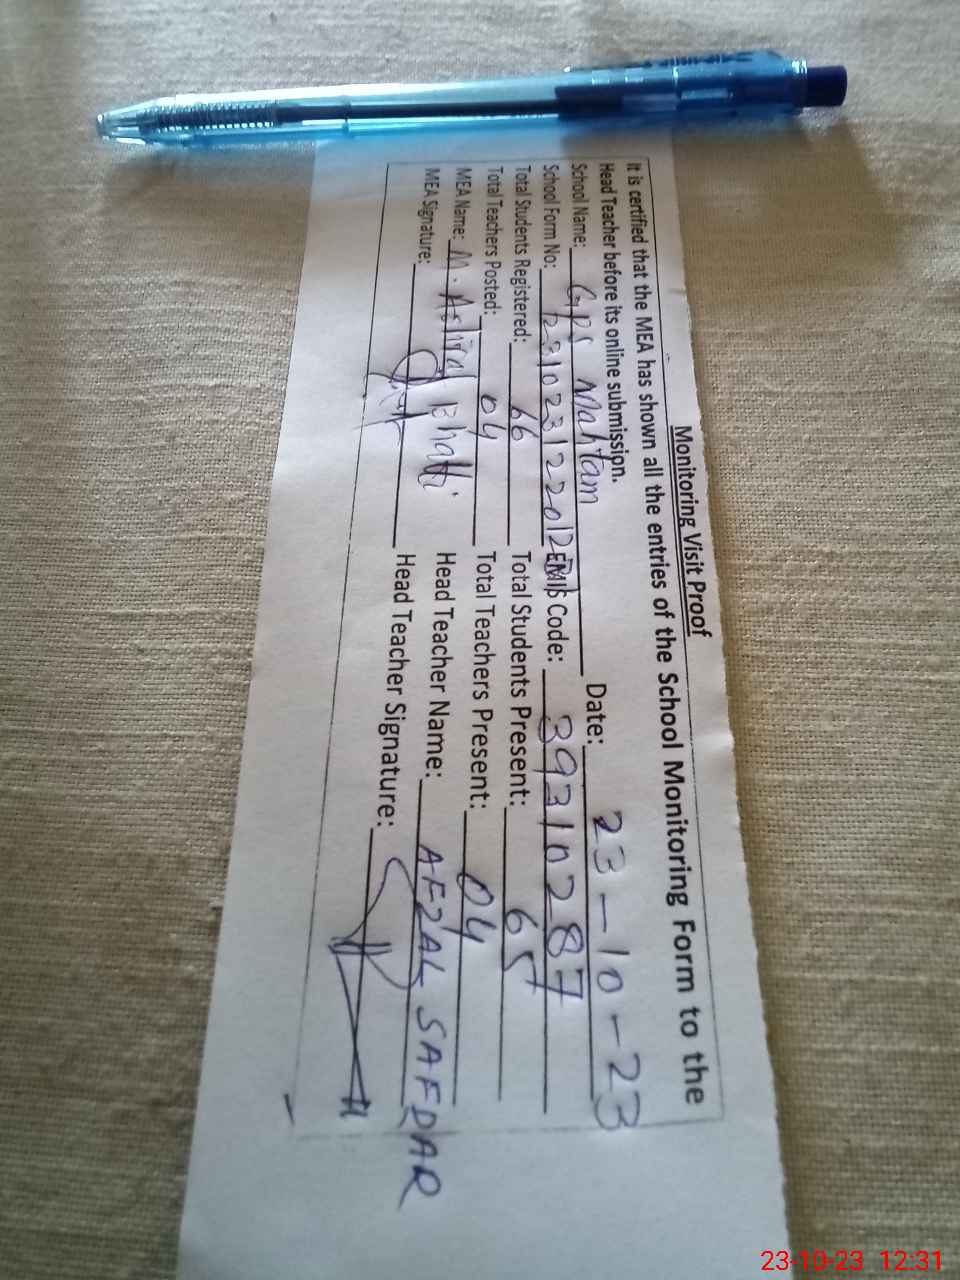 Monitoring Visit Proof
It is certified that the MEA has shown all the entries of the School Monitoring Form to the
Head Teacher before its online submission.
School Name: GPS Mahtam Date: 23-10-23
School Form No: EMIS Code: 39310287
Total Students Registered: 66 Total Students Present: 65
Total Teachers Posted: 04 Total Teachers Present: 04
MEA Name: M. Bhatti Head Teacher Name: AFZAL SAFDAR
MEA Signature: Head Teacher Signature:
23-10-23 12:31